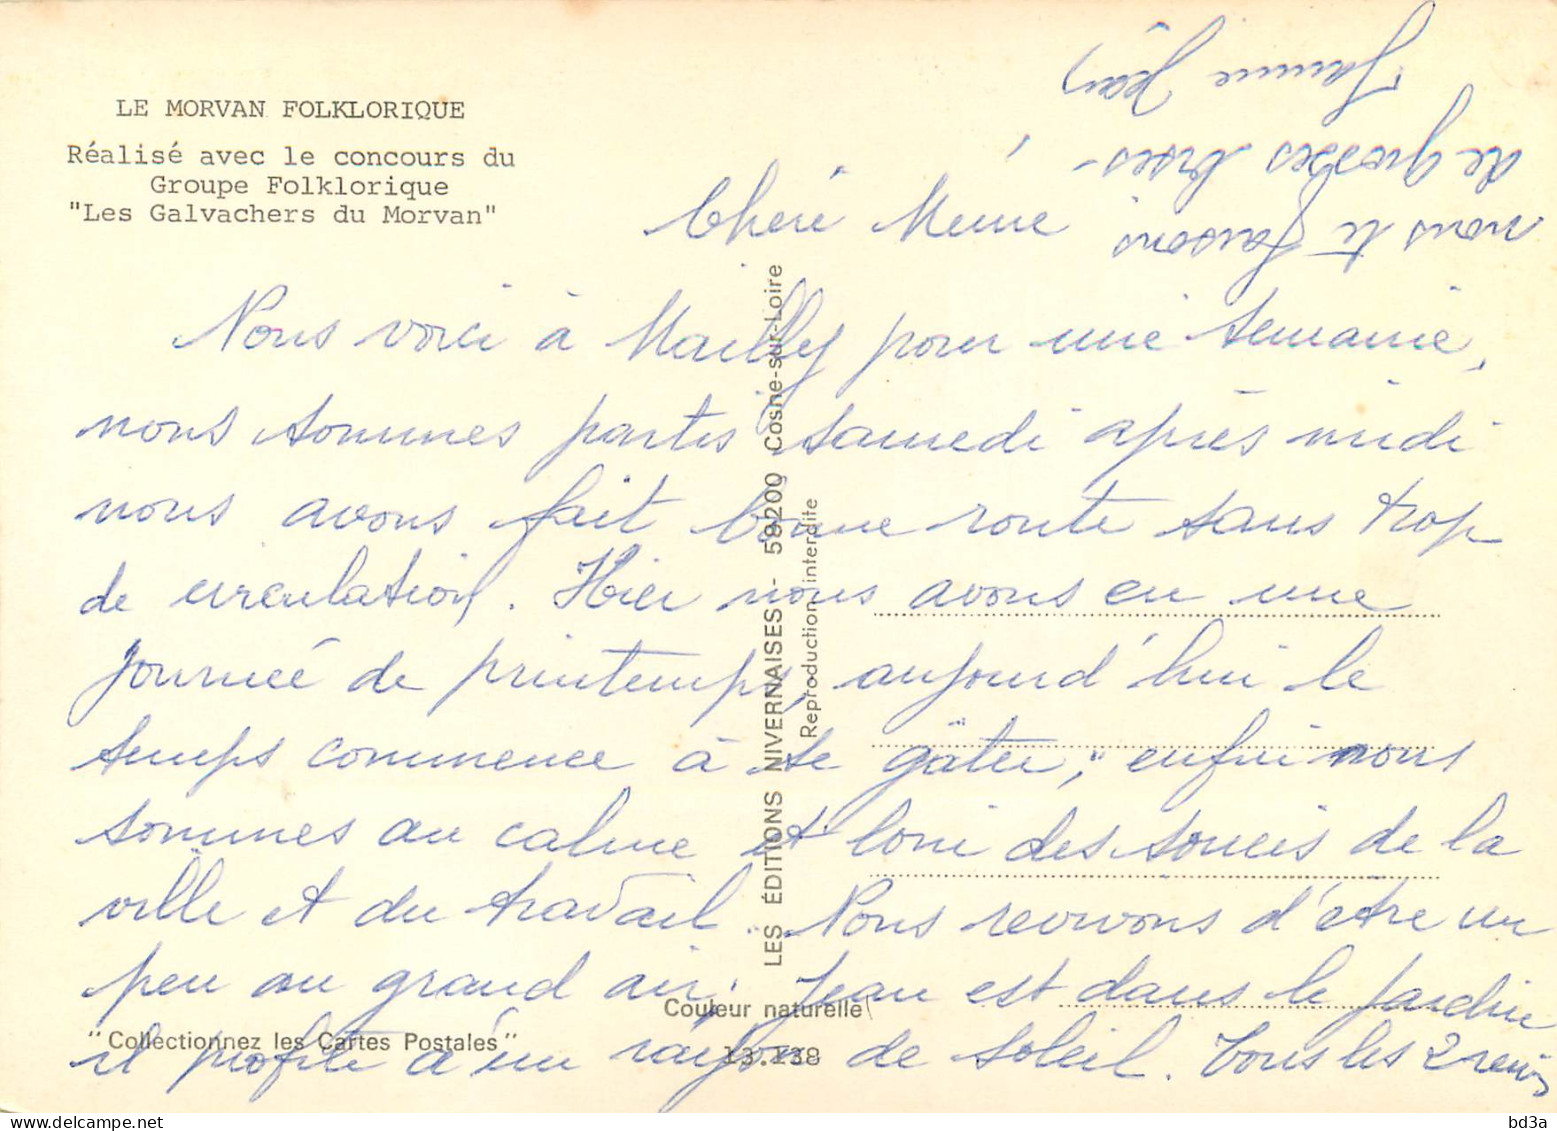 LE MORVAN FOLKLORIQUE
Réalisé avec le concours du
Groupe Folklorique
"Les Galvachers du Morvan"
Chère Meme,
Nous voici à Mailly pour une semaine,
nous sommes partis samedi après midi
nous avons fait bonne route sans trop
de circulation. Hier nous avons eu une
journée de printemps, aujourd'hui le
temps commence à se gâter, enfin nous
sommes au calme et loin des soucis de la
ville et du travail. Nous revivons d'être un
peu au grand air. Jean est dans le jardin
il profite d'un rayon de soleil. Tous les 2
nous te faisons
de grosses bises -
Jeanine Jean
LES ÉDITIONS NIVERNAISES - 58200 Cosne-sur-Loire
Reproduction interdite
Couleur naturelle
13.138
"Collectionnez les Cartes Postales"
bd3a